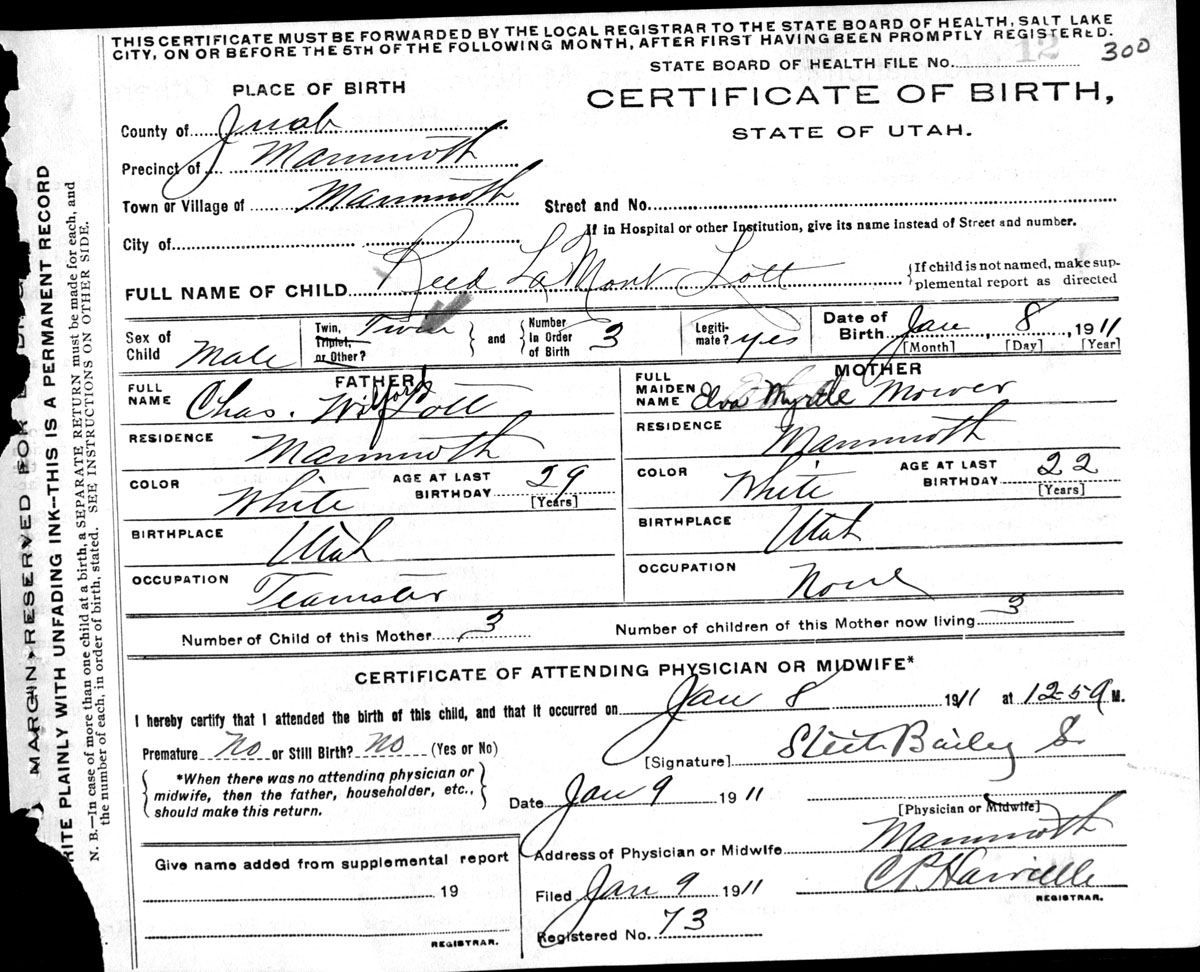 THIS CERTIFICATE MUST BE FORWARDED BY THE LOCAL REGISTRAR TO THE STATE BOARD OF HEALTH, SALT LAKE
CITY, ON OR BEFORE THE 5TH OF THE FOLLOWING MONTH, AFTER FIRST HAVING BEEN PROMPTLY REGISTERED.
STATE BOARD OF HEALTH FILE No. 12 300
PLACE OF BIRTH
CERTIFICATE OF BIRTH,
STATE OF UTAH.
County of Juab
Precinct of Mammoth
Town or Village of Mammoth Street and No.
If in Hospital or other Institution, give its name instead of Street and number.
City of
FULL NAME OF CHILD Reed LaMont Lott
{If child is not named, make sup-
plemental report as directed
Sex of Child Male
Twin, Triplet, or Other? Twin
and
Number in Order of Birth 3
Legiti-mate? yes
Date of Birth Jan 8, 1911
[Month] [Day] [Year]
FATHER
FULL NAME Chas. Wilford Lott
MOTHER
FULL MAIDEN NAME Elva Myrtle Mower
RESIDENCE Mammoth
RESIDENCE Mammoth
COLOR White AGE AT LAST BIRTHDAY 29 [Years]
COLOR White AGE AT LAST BIRTHDAY 22 [Years]
BIRTHPLACE Utah
BIRTHPLACE Utah
OCCUPATION Teamster
OCCUPATION None
Number of Child of this Mother 3 Number of children of this Mother now living 3
CERTIFICATE OF ATTENDING PHYSICIAN OR MIDWIFE*
I hereby certify that I attended the birth of this child, and that it occurred on Jan 8 1911 at 12-5 a M.
Premature No or Still Birth? No (Yes or No)
[Signature] Bailey
{*When there was no attending physician or
midwife, then the father, householder, etc.,
should make this return.}
Date Jan 9 1911
[Physician or Midwife]
Address of Physician or Midwife Mammoth
Give name added from supplemental report
19
REGISTRAR.
Filed Jan 9 1911
REGISTRAR.
Registered No. 73
MARGIN RESERVED FOR
RITE PLAINLY WITH UNFADING INK—THIS IS A PERMANENT RECORD
N. B.—In case of more than one child at a birth, a SEPARATE RETURN must be made for each, and
the number of each, in order of birth, stated. SEE INSTRUCTIONS ON OTHER SIDE.